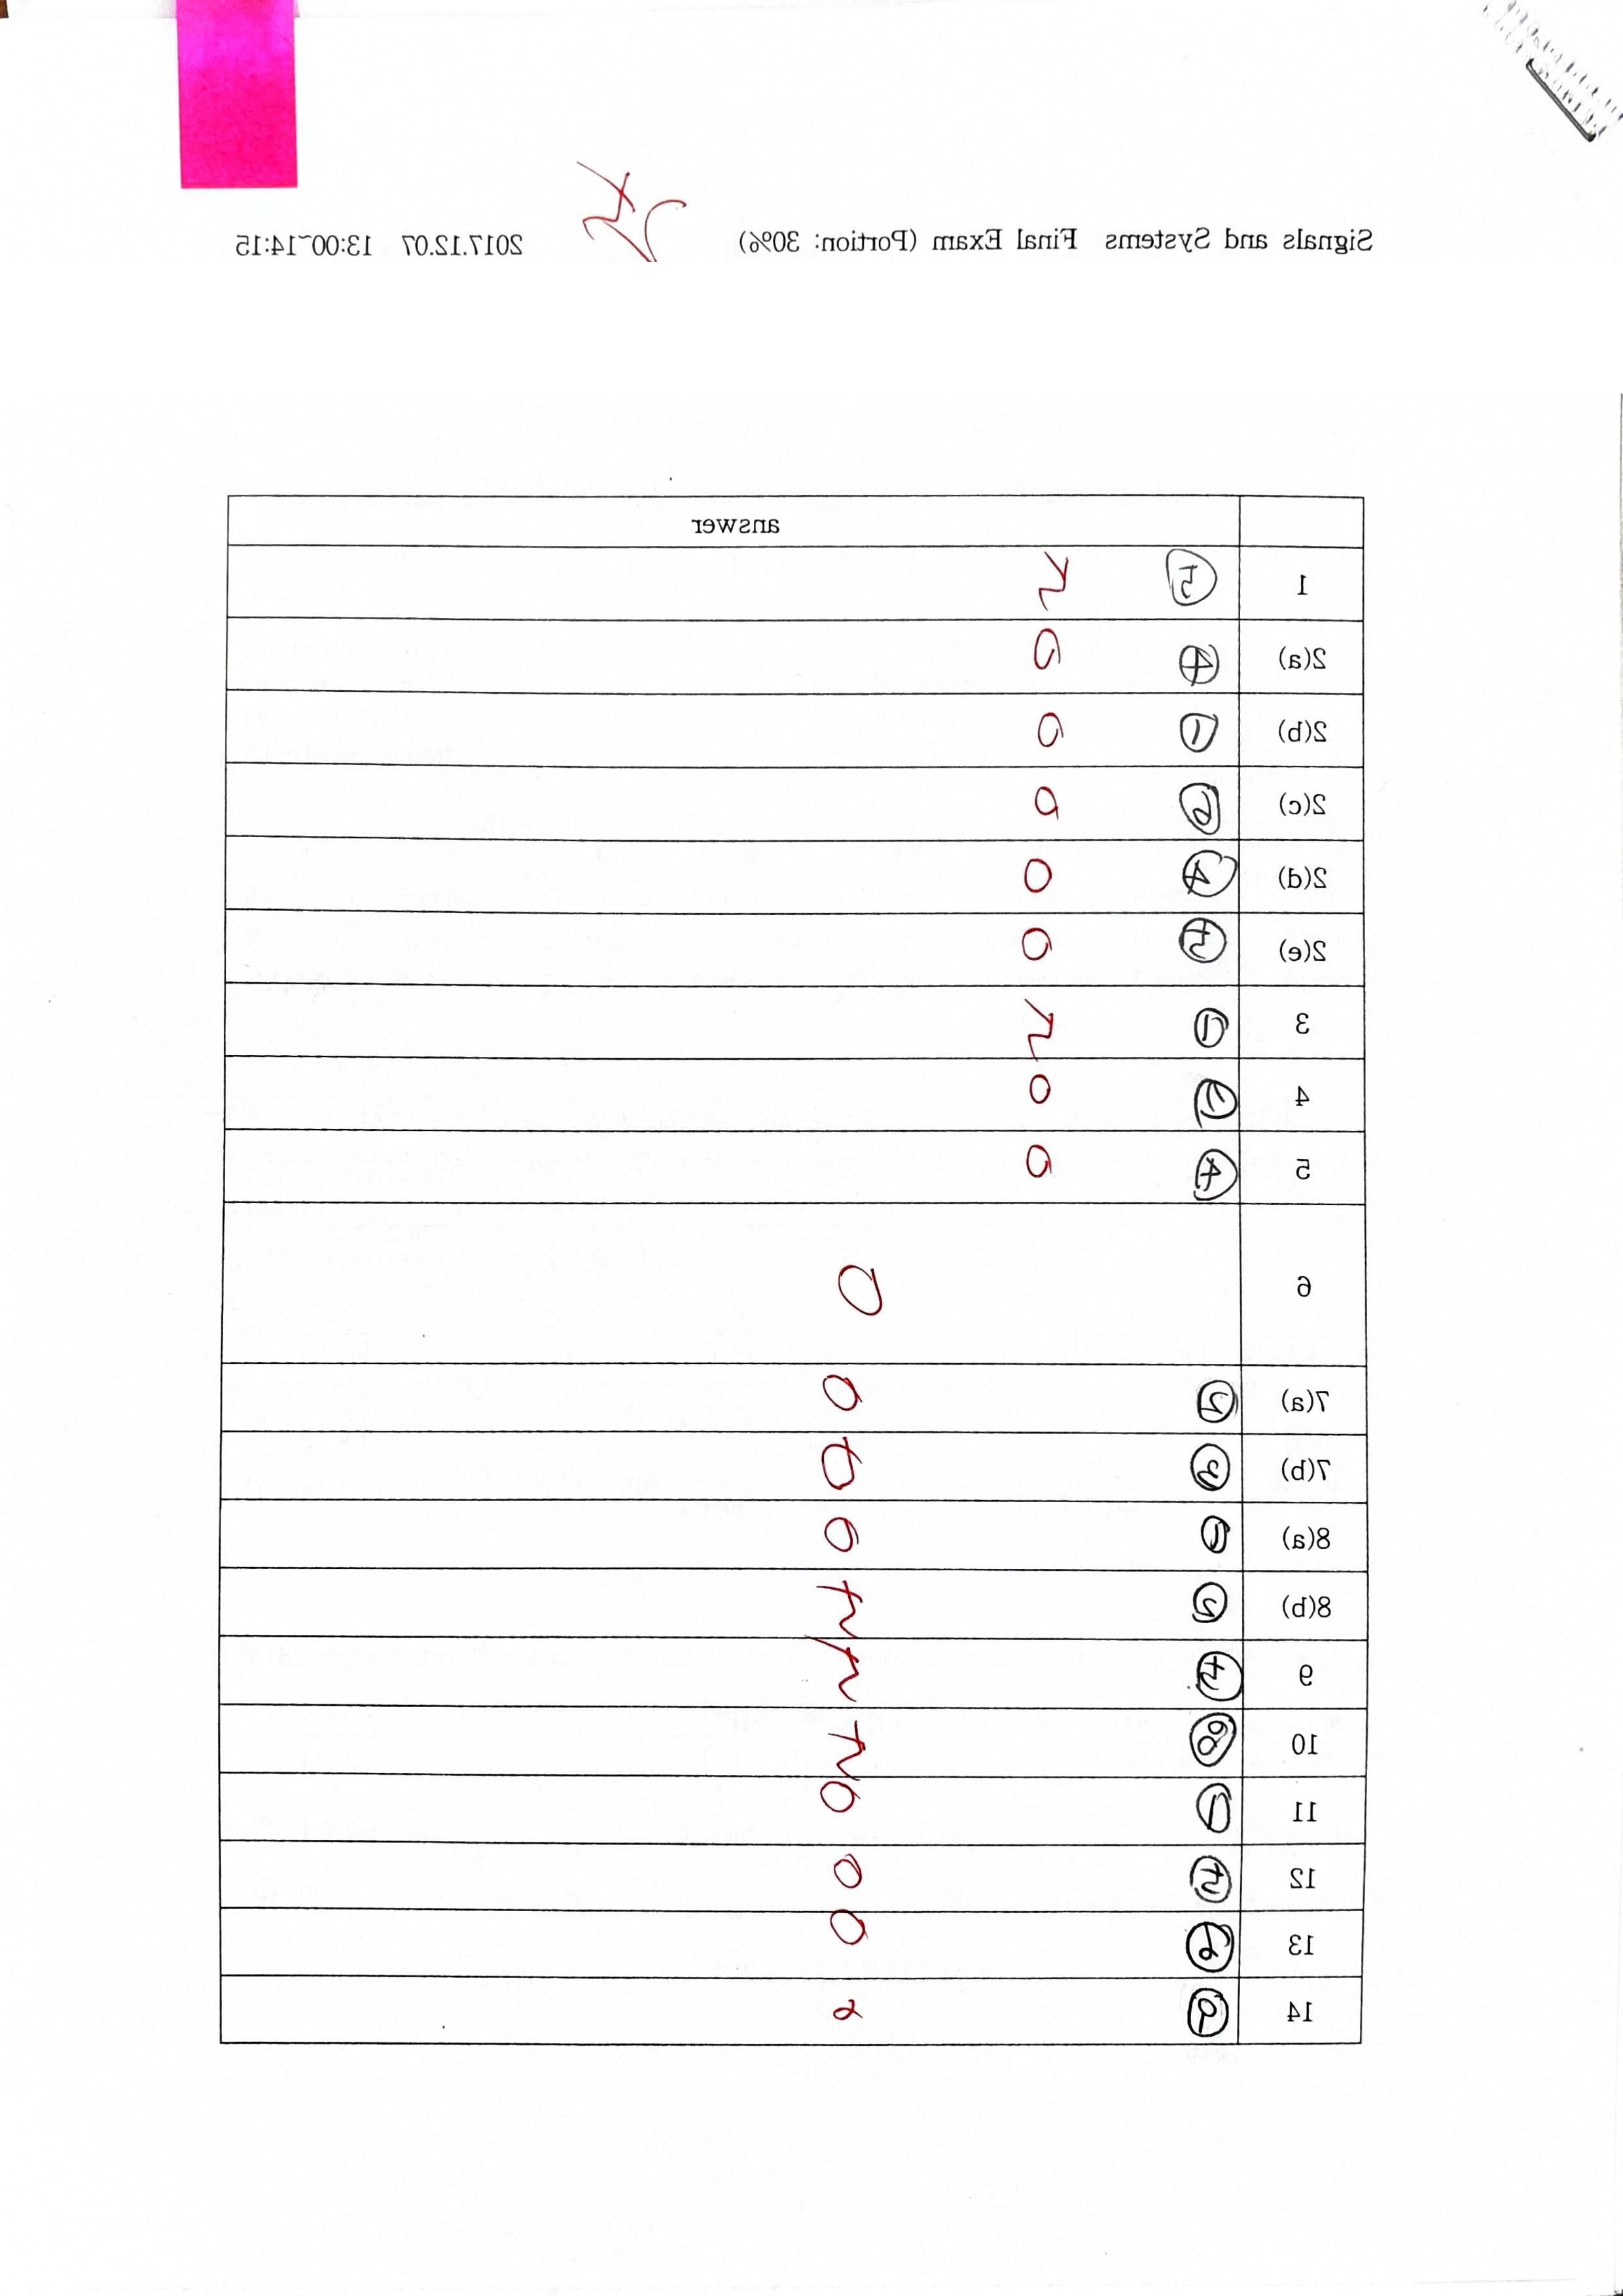 Signals and Systems Final Exam (Portion: 30%) 2017.12.07 13:00~14:15
answer
1 ⑤
2(a) ④
2(b) ①
2(c) ⑥
2(d) ④
2(e) ⑤
3 ①
4 ①
5 ④
6
7(a)
7(b) ③
8(a) ①
8(b)
9 ⑤
10 ⑧
11 ①
12 ⑤
13 ⑥
14